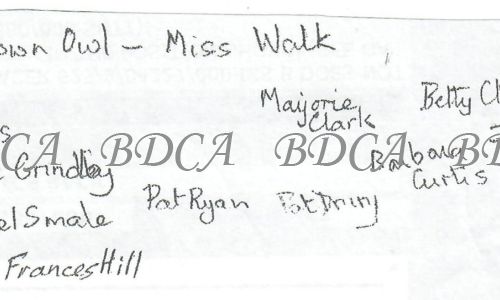 own Owl – Miss Walk
Marjorie Clark
Betty Cl
s
CA BDCA BDCA BDCA
Grindlay
Barbara Curtis
el Smale
Pat Ryan
Pat Drury
Frances Hill